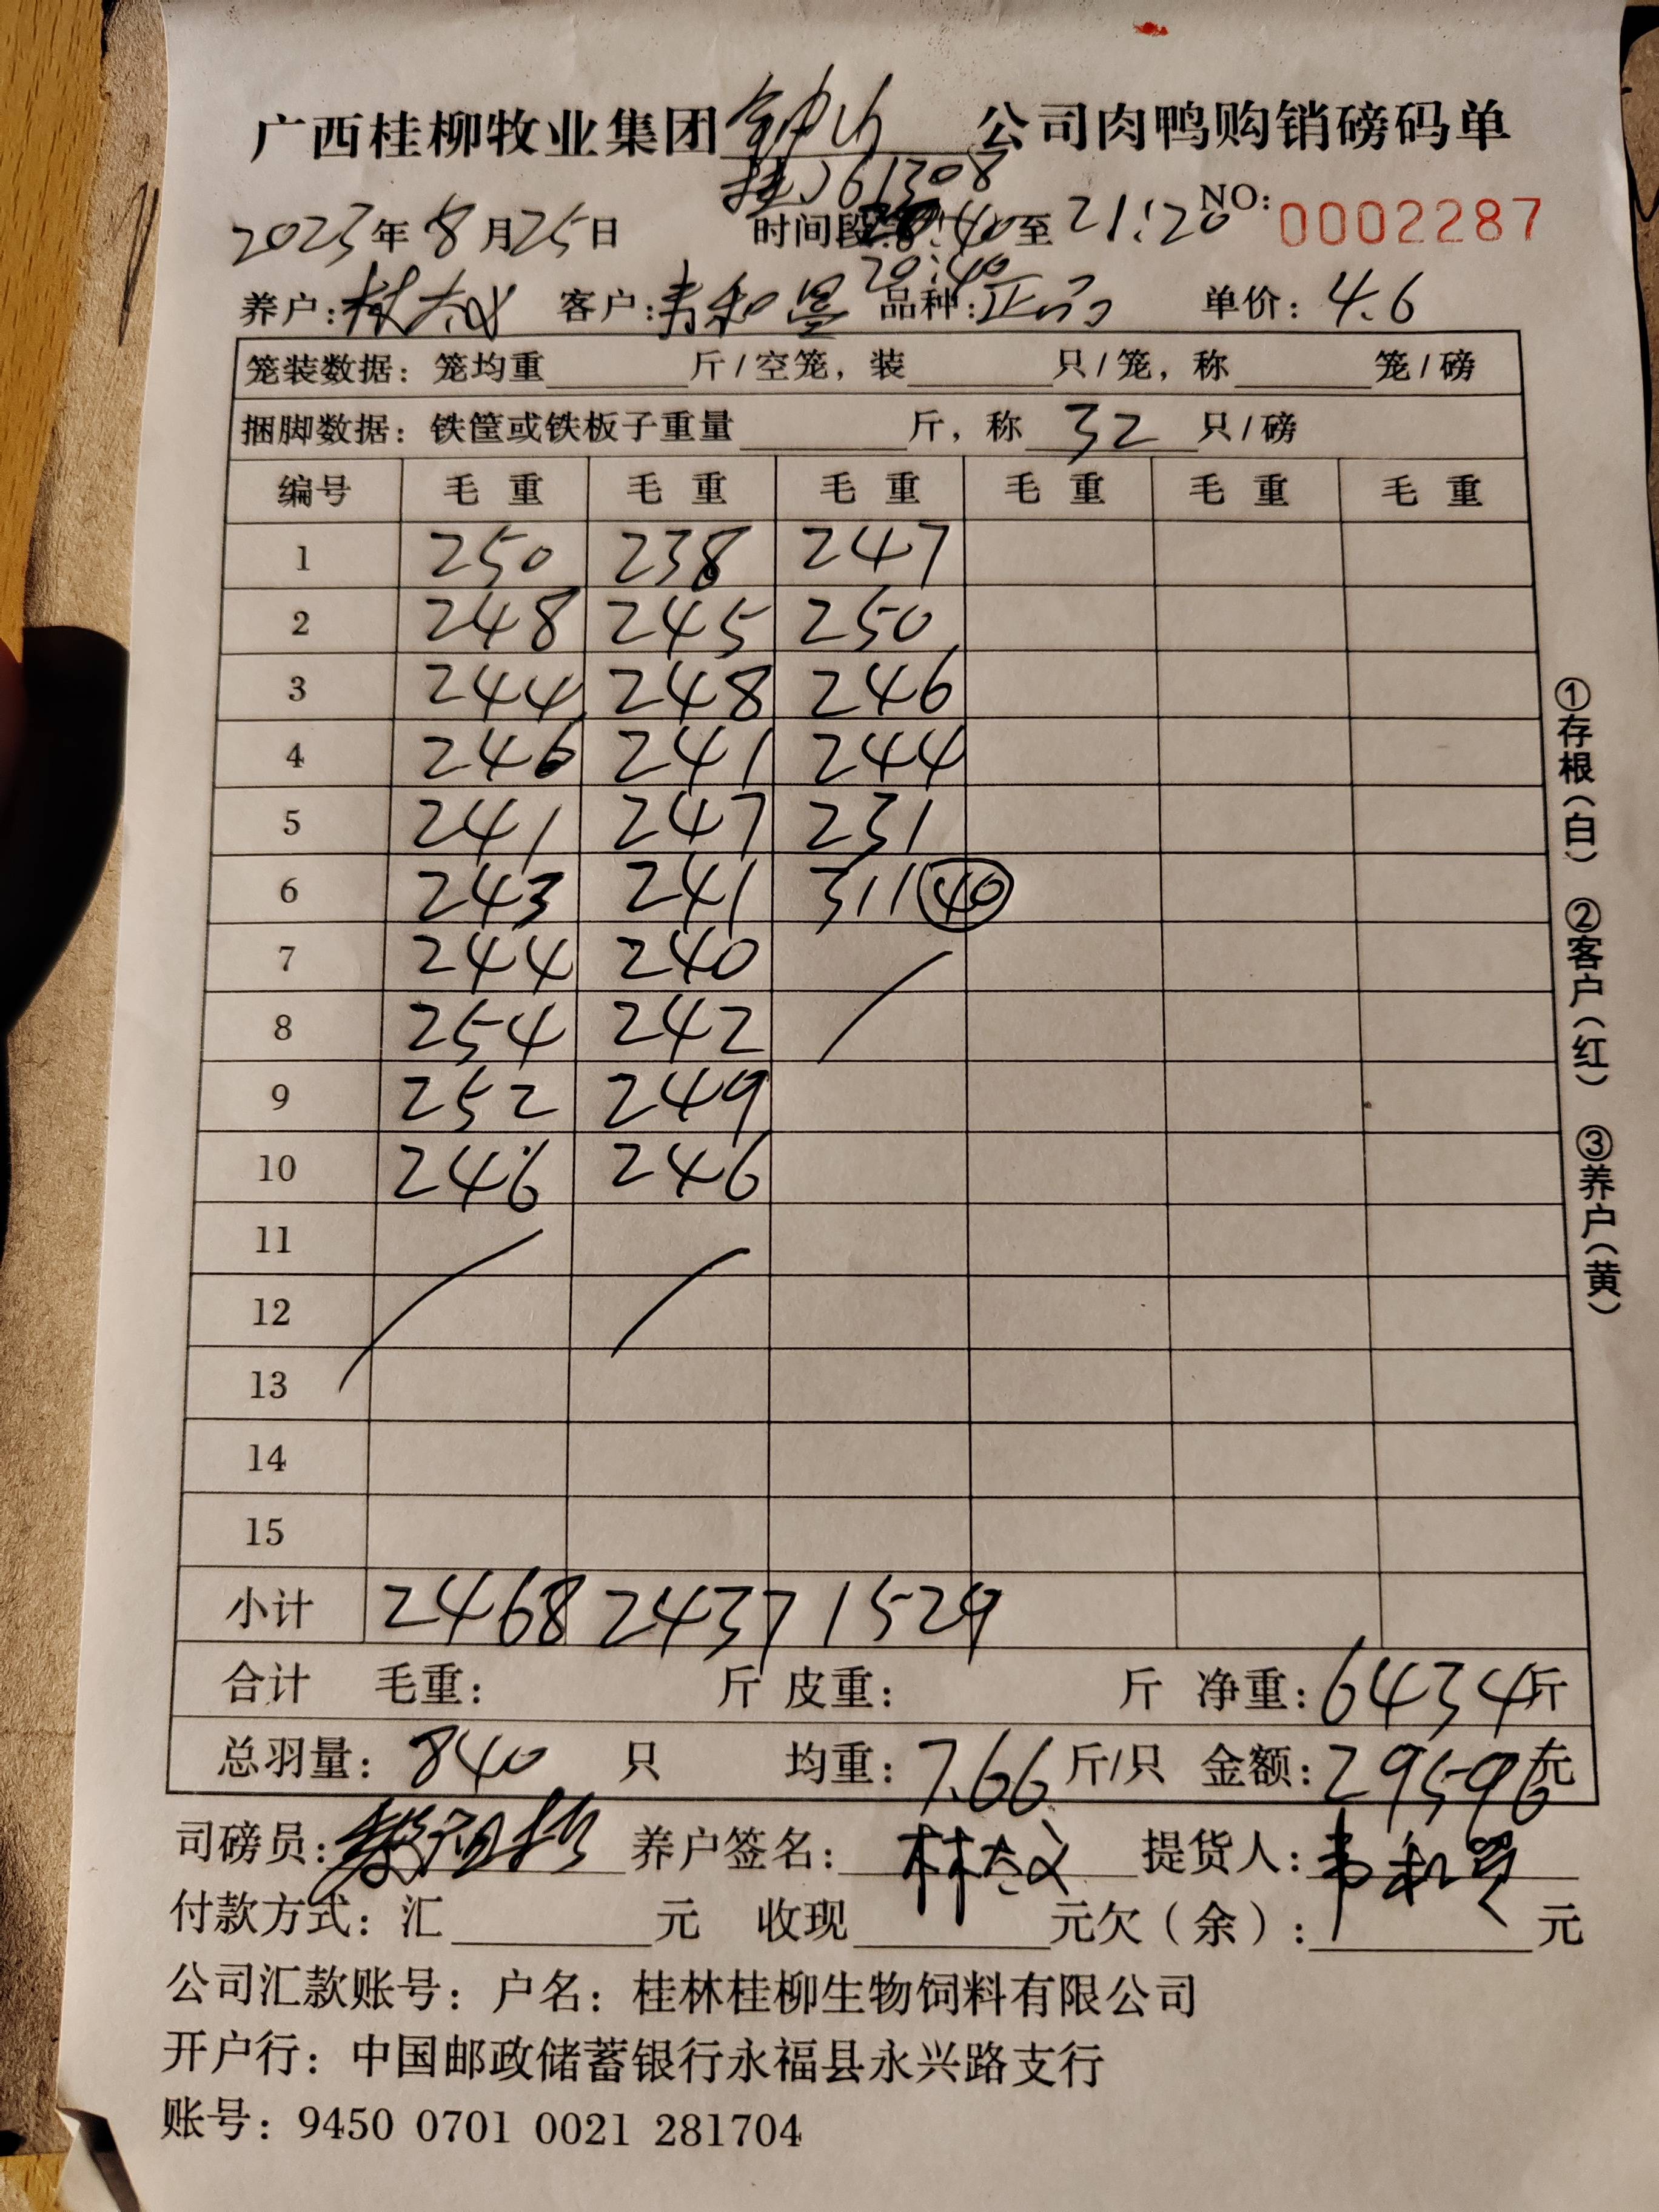 广西桂柳牧业集团钟山公司肉鸭购销磅码单
桂J61308
2023年8月25日 时间段: 至21:20 NO: 0002287
20:40
养户: 林太义 客户: 韦和 品种: 正品 单价: 4.6
笼装数据: 笼均重 斤/空笼, 装 只/笼, 称 笼/磅
捆脚数据: 铁筐或铁板子重量 斤, 称 32 只/磅
编号 毛重 毛重 毛重 毛重 毛重 毛重
1 250 238 247
2 248 245 250
3 244 248 246
4 246 241 244
5 241 247 231
6 243 241 311 40
7 244 240
8 254 242
9 252 249
10 246 246
11
12
13
14
15
小计 2468 2437 1529
合计 毛重: 斤 皮重: 斤 净重: 6434斤
总羽量: 840 只 均重: 7.66 斤/只 金额: 29596元
司磅员: 养户签名: 林太义 提货人: 韦和
付款方式: 汇 元 收现 元欠(余): 元
公司汇款账号: 户名: 桂林桂柳生物饲料有限公司
开户行: 中国邮政储蓄银行永福县永兴路支行
账号: 9450 0701 0021 281704
①存根(白) ②客户(红) ③养户(黄)